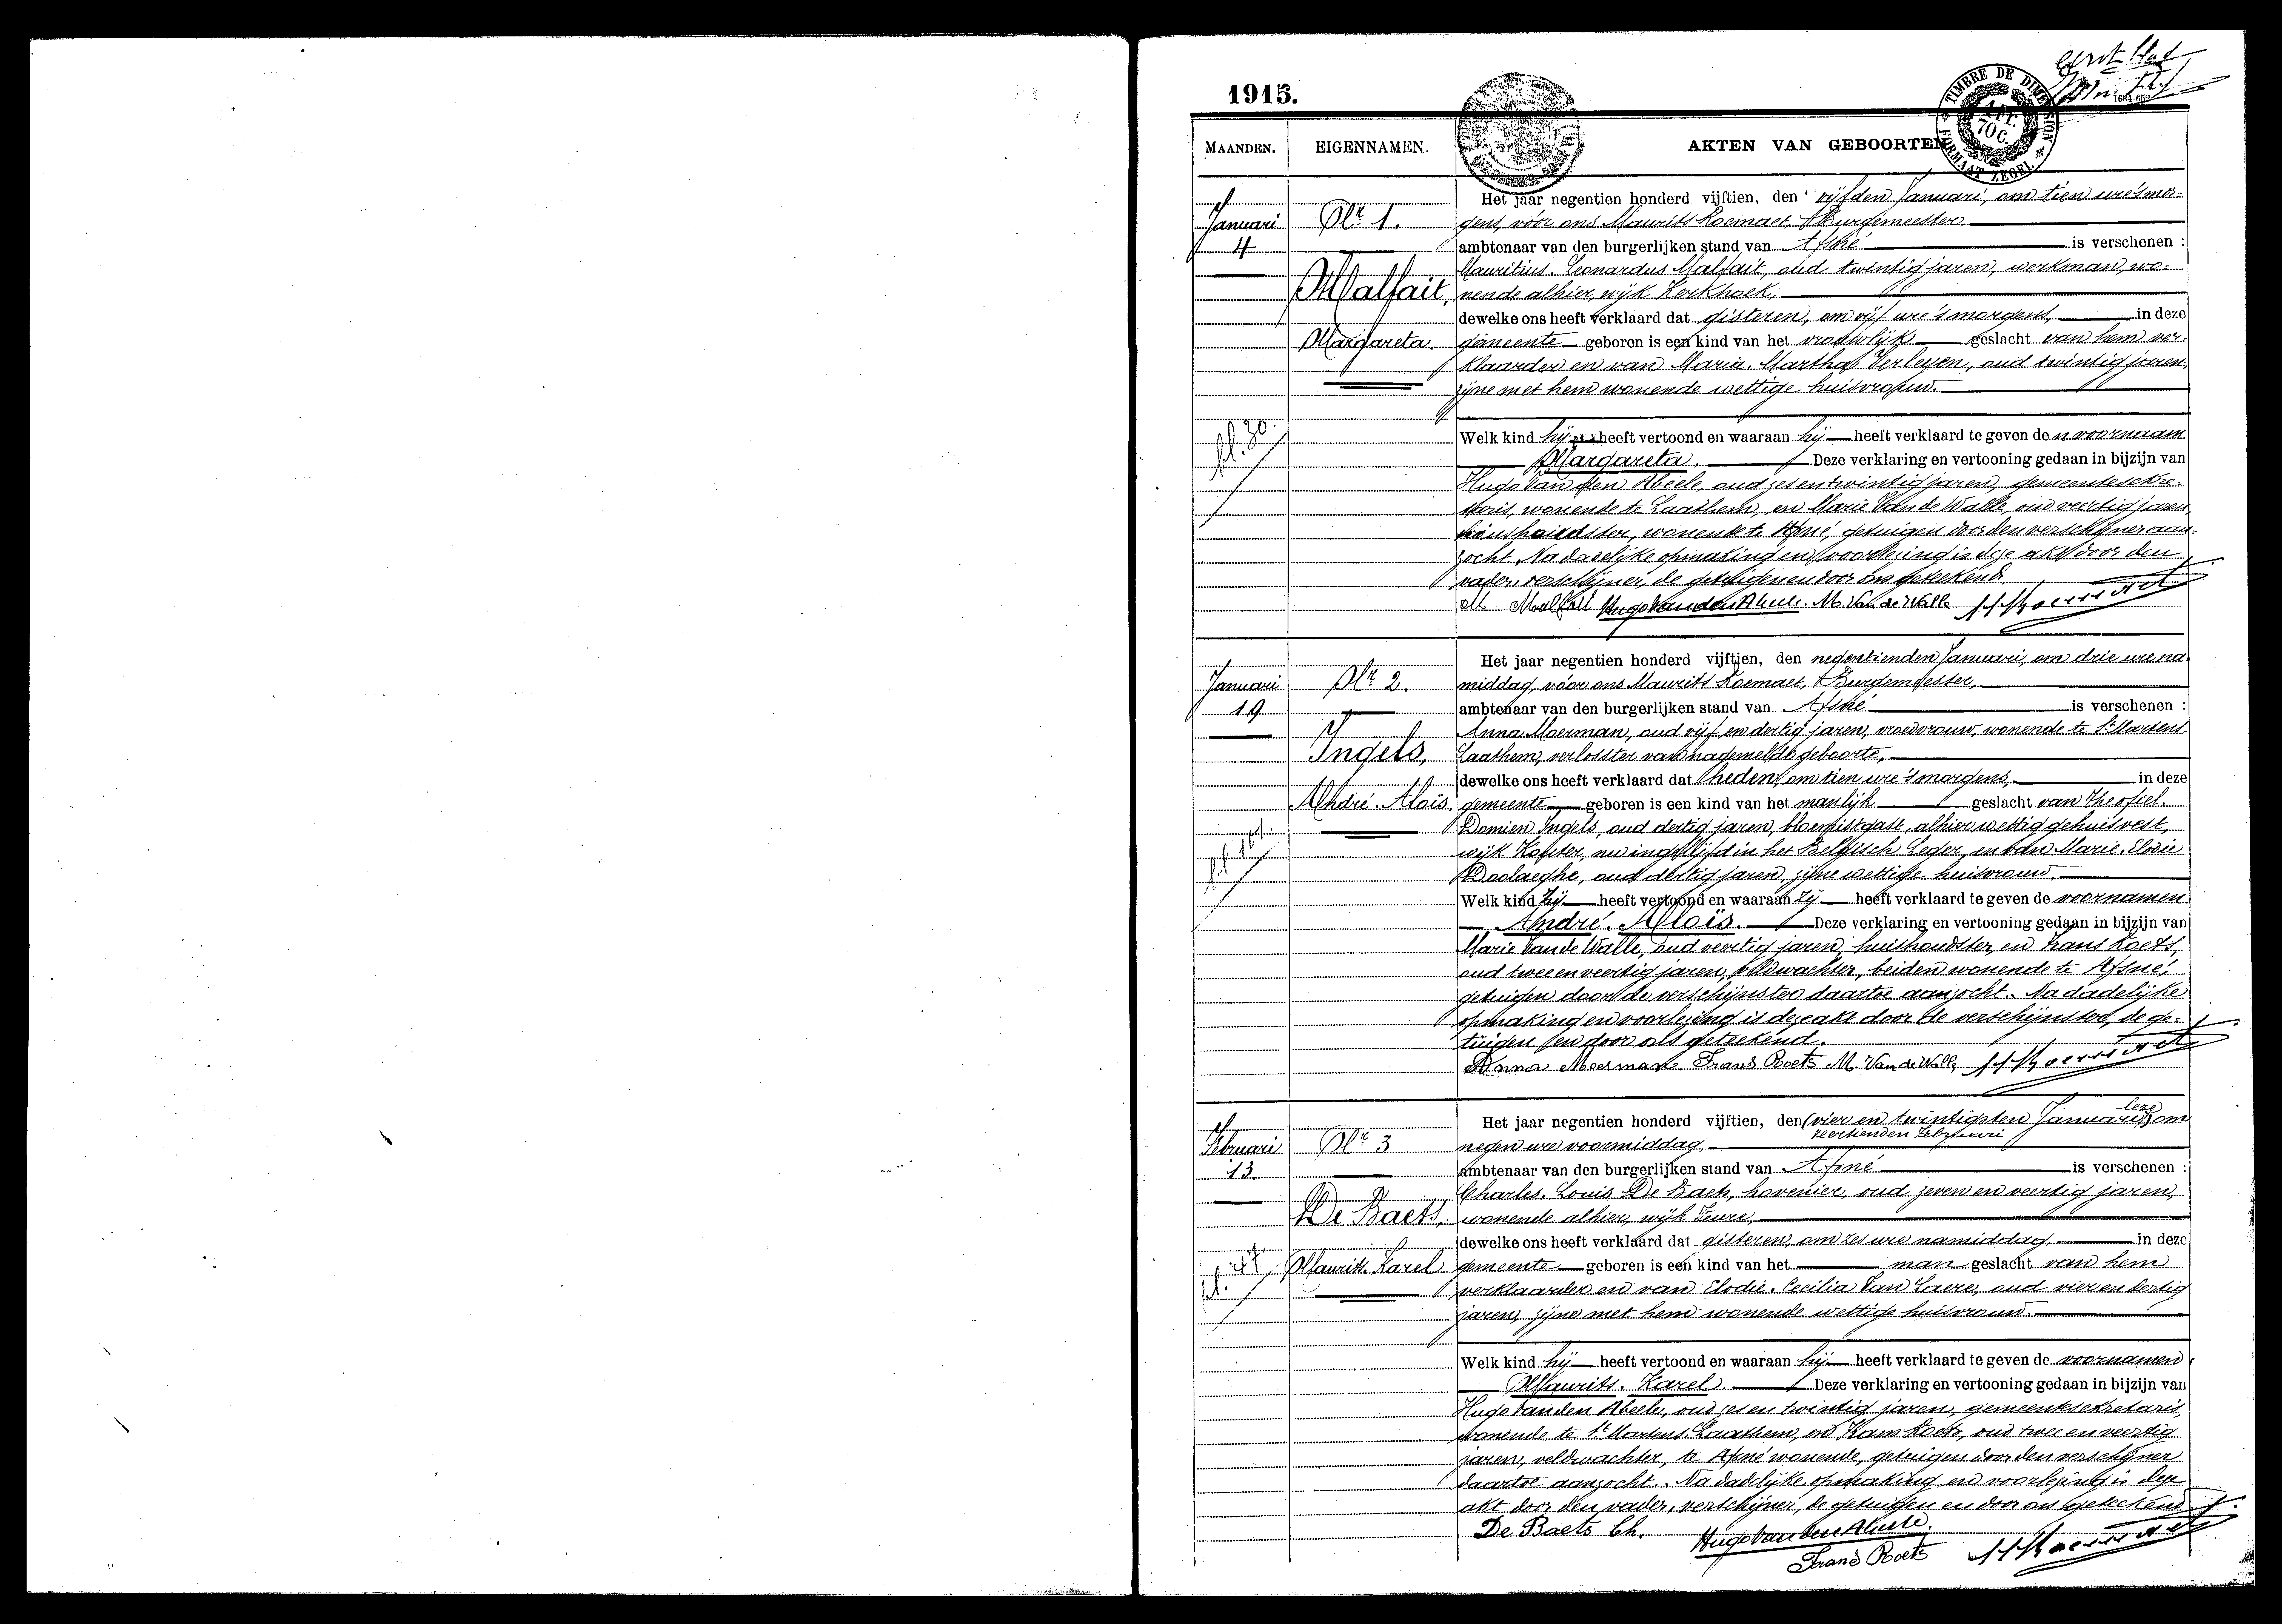 eerste blad
1915.
TIMBRE DE DIMENSION
FORMAAT ZEGEL
70 C.
MAANDEN. EIGENNAMEN. AKTEN VAN GEBOORTEN
Januari
4
Nr 1.
Malfait,
Margareta.
Het jaar negentien honderd vijftien, den vijfden Januari, om tien ure 's mor-
gens, vóór ons Maurits Roemaet, Burgemeester,
ambtenaar van den burgerlijken stand van Afsné is verschenen :
Mauritius-Leonardus Malfait, oud twintig jaren, werkman, wo-
nende alhier, wijk Kerkhoek,
dewelke ons heeft verklaard dat gisteren, om vijf ure 's morgens, in deze
gemeente geboren is een kind van het vrouwlijk geslacht van hem ver-
klaarder en van Maria-Martha Verleyen, oud twintig jaren,
zijne met hem wonende wettige huisvrouw.
Welk kind hij heeft vertoond en waaraan hij heeft verklaard te geven den voornaam
Margareta. Deze verklaring en vertooning gedaan in bijzijn van
Hugo Van den Abeele, oud zes en twintig jaren, gemeentesekre-
taris, wonende te Laathem, en Marie Van de Walle, oud veertig jaren
huishoudster, wonende te Afsné, getuigen door den verschijner aan-
zocht. Na dadelijke opmaking en voorlezing is deze akt door den
vader, verschijner, de getuigen en door ons geteekend.
M Malfait Hugo Van den Abeele. M. Van de Walle
Januari
19
Nr 2.
Ingels,
André-Aloïs.
Het jaar negentien honderd vijftien, den negentienden Januari, om drie ure na-
middag, vóór ons Maurits Roemaet, Burgemeester,
ambtenaar van den burgerlijken stand van Afsné is verschenen :
Anna Moerman, oud vijf en dertig jaren, vroedvrouw, wonende te St Martens-
Laathem, verlosster van nagemelde geboorte,
dewelke ons heeft verklaard dat heden, om tien ure 's morgens, in deze
gemeente geboren is een kind van het manlijk geslacht van Theofiel-
Damien Ingels, oud dertig jaren, bloemistgast, alhier wettig gehuisvest,
wijk Kouter, nu ingelijfd in het Belgisch Leger, en van Marie-Elodie
Doolaeghe, oud dertig jaren, zijne wettige huisvrouw.
Welk kind zij heeft vertoond en waaraan zij heeft verklaard te geven de voornamen
André-Aloïs. Deze verklaring en vertooning gedaan in bijzijn van
Marie Van de Walle, oud veertig jaren, huishoudster, en Frans Roets,
oud twee en veertig jaren, veldwachter, beiden wonende te Afsné,
getuigen door de verschijnster daartoe aanzocht. Na dadelijke
opmaking en voorlezing is deze akt door de verschijnster, de ge-
tuigen en door ons geteekend.
Anna Moerman Frans Roets M. Van de Walle
Februari
13.
Nr 3
De Baets,
Maurits-Karel
Het jaar negentien honderd vijftien, den (vier en twintigsten Januari) om
leze
veertienden Februari
negen ure voormiddag,
ambtenaar van den burgerlijken stand van Afsné is verschenen :
Charles-Louis De Baets, hovenier, oud zeven en veertig jaren,
wonende alhier, wijk Veure,
dewelke ons heeft verklaard dat gisteren, om zes ure namiddag, in deze
gemeente geboren is een kind van het man geslacht van hem
verklaarder en van Elodie-Cecilia Van Laere, oud vier en dertig
jaren, zijne met hem wonende wettige huisvrouw.
Welk kind hij heeft vertoond en waaraan hij heeft verklaard te geven de voornamen
Maurits-Karel. Deze verklaring en vertooning gedaan in bijzijn van
Hugo Van den Abeele, oud zes en twintig jaren, gemeentesekretaris,
wonende te St Martens-Laathem, en Frans Roets, oud twee en veertig
jaren, veldwachter, te Afsné wonende, getuigen door den verschijner
daartoe aanzocht. Na dadelijke opmaking en voorlezing is deze
akt door den vader, verschijner, de getuigen en door ons geteekend
De Baets Ch. Hugo Van den Abeele.
Frans Roets